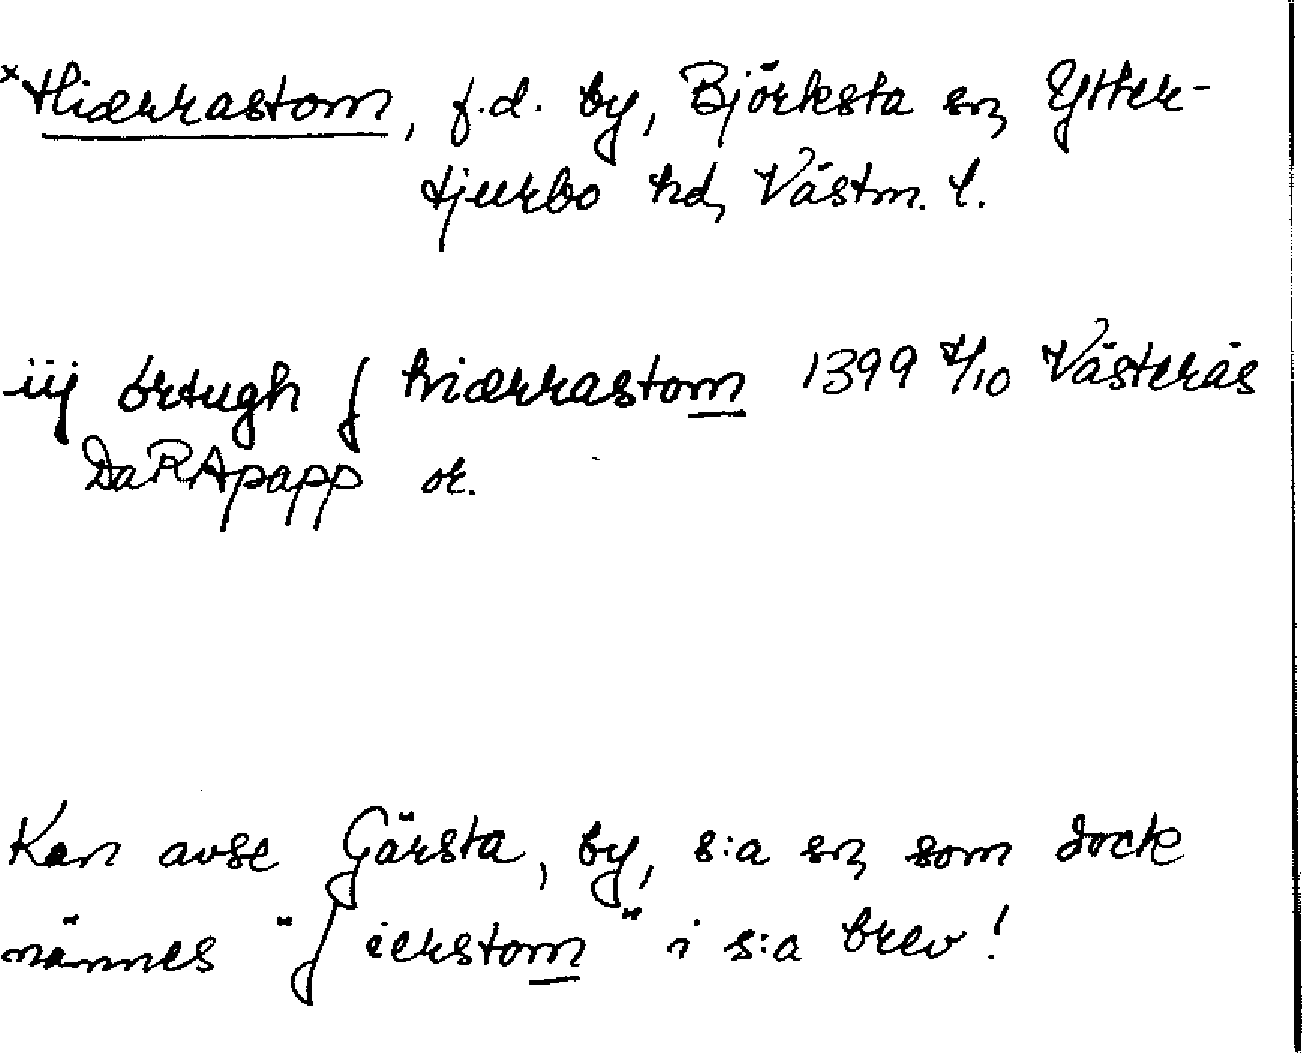 *Hiærrastom, f.d. by, Björksta sn, Ytter-
tjurbo hd, Västm. l.
iij örtugh j hiærrastom 1399 4/10 Västerås
DaRApapp or.
Kan avse Gärsta, by, s:a sn, som dock
nämnes "j ierstom" i s:a brev!